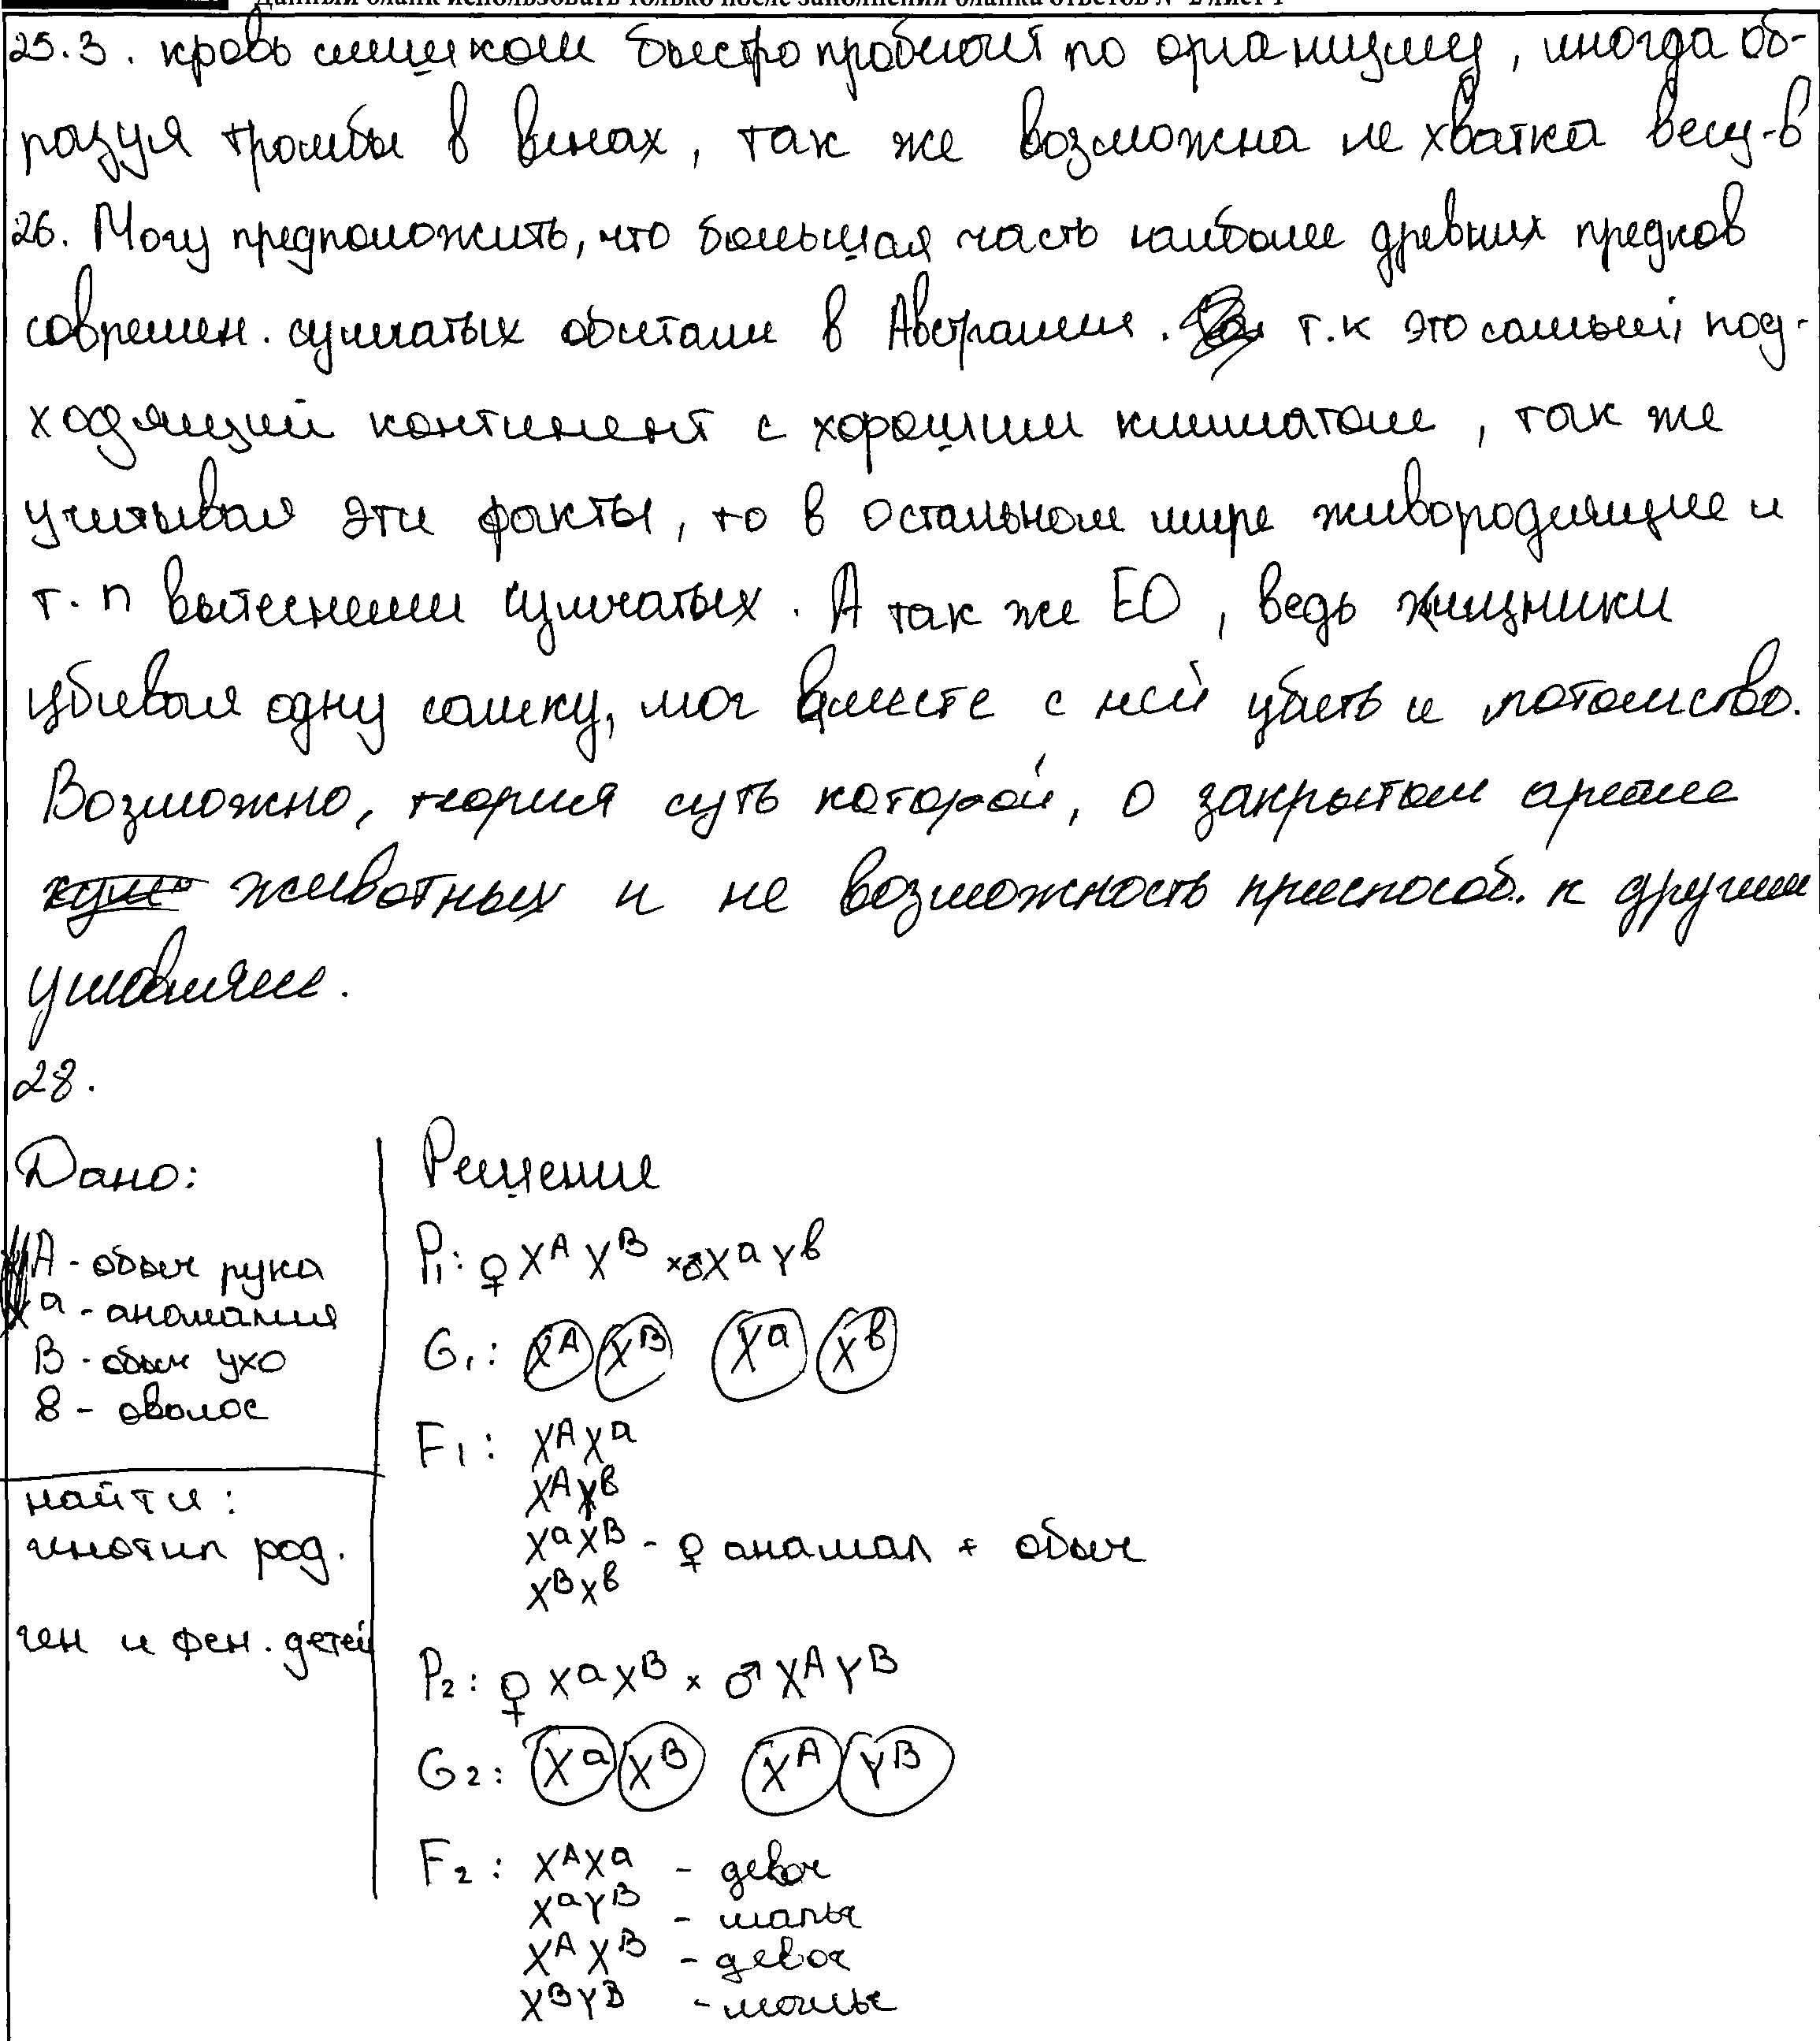 Данный бланк использовать только после заполнения бланка ответов № 2 лист 1
25.3. кровь слишком быстро пробегает по организму, иногда об-
разуя тромбы в венах, так же возможна не хватка вещ-в
26. Могу предположить, что большая часть наиболее древних предков
современ. сумчатых обитали в Австралии. т.к это самый под-
ходящий континент с хорошим климатом, так же
учитывая эти факты, то в остальном мире живородящие и
т.п вытеснили сумчатых. А так же ЕО, ведь хищники
убивая одну самку, мог вместе с ней убить и потомство.
Возможно, теория суть которой, о закрытом ареале
животных и не возможность приспособ. к другим
условиям.
28.
Дано:
A - обыч рука
a - аномалия
B - обыч ухо
в - оволос
найти:
генотип род.
ген и фен. детей
Решение
P₁: ♀ Xᴬ Xᴮ × ♂ Xᵃ Yᵇ
G₁: Xᴬ Xᴮ Xᵃ Xᵇ
F₁: XᴬXᵃ
XᴬXᵇ
XᵃXᴮ - ♀ анамал + обыч
XᴮXᵇ
P₂: ♀ XᵃXᴮ × ♂ XᴬYᴮ
G₂: Xᵃ Xᴮ Xᴬ Yᴮ
F₂: XᴬXᵃ - девоч
XᵃYᴮ - мальч
XᴬXᴮ - девоч
XᴮYᴮ - мальч